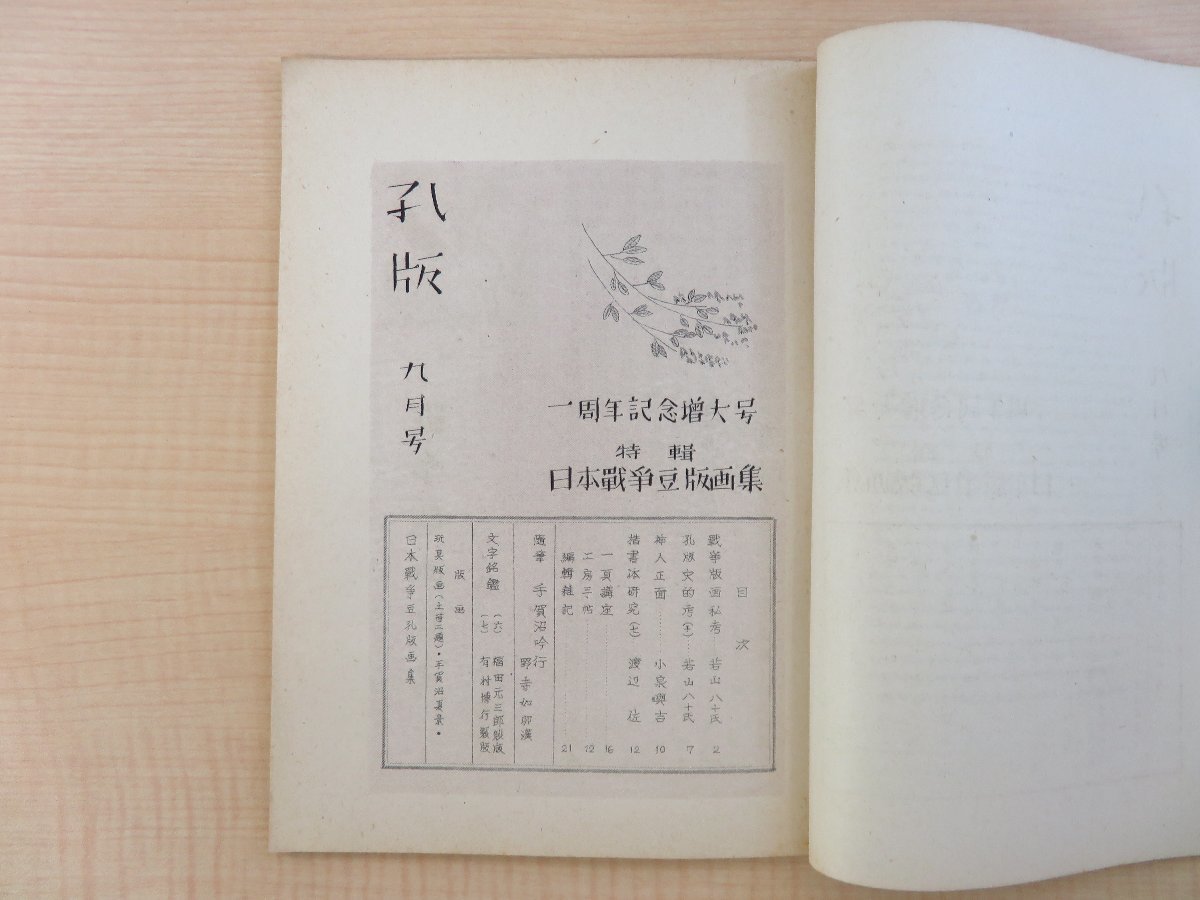 孔版
九月号
一周年記念増大号
特輯
日本戰爭豆版画集
目次
戰爭版画私考……若山八十氏 2
孔版史的考(十)…若山八十氏 7
神人正面………小泉與吉 10
楷書体研究(七) 渡辺 佐 12
一頁講座……… 16
工房手帖……… 12
編輯雑記……… 21
隨筆 手賀沼吟行
野寺如卵漢
文字銘鑑 (六) 福田元三郎製版
(七) 有村博行製版
版画
玩具版画(土苗二題)・手賀沼夏景・
日本戰爭豆孔版画集